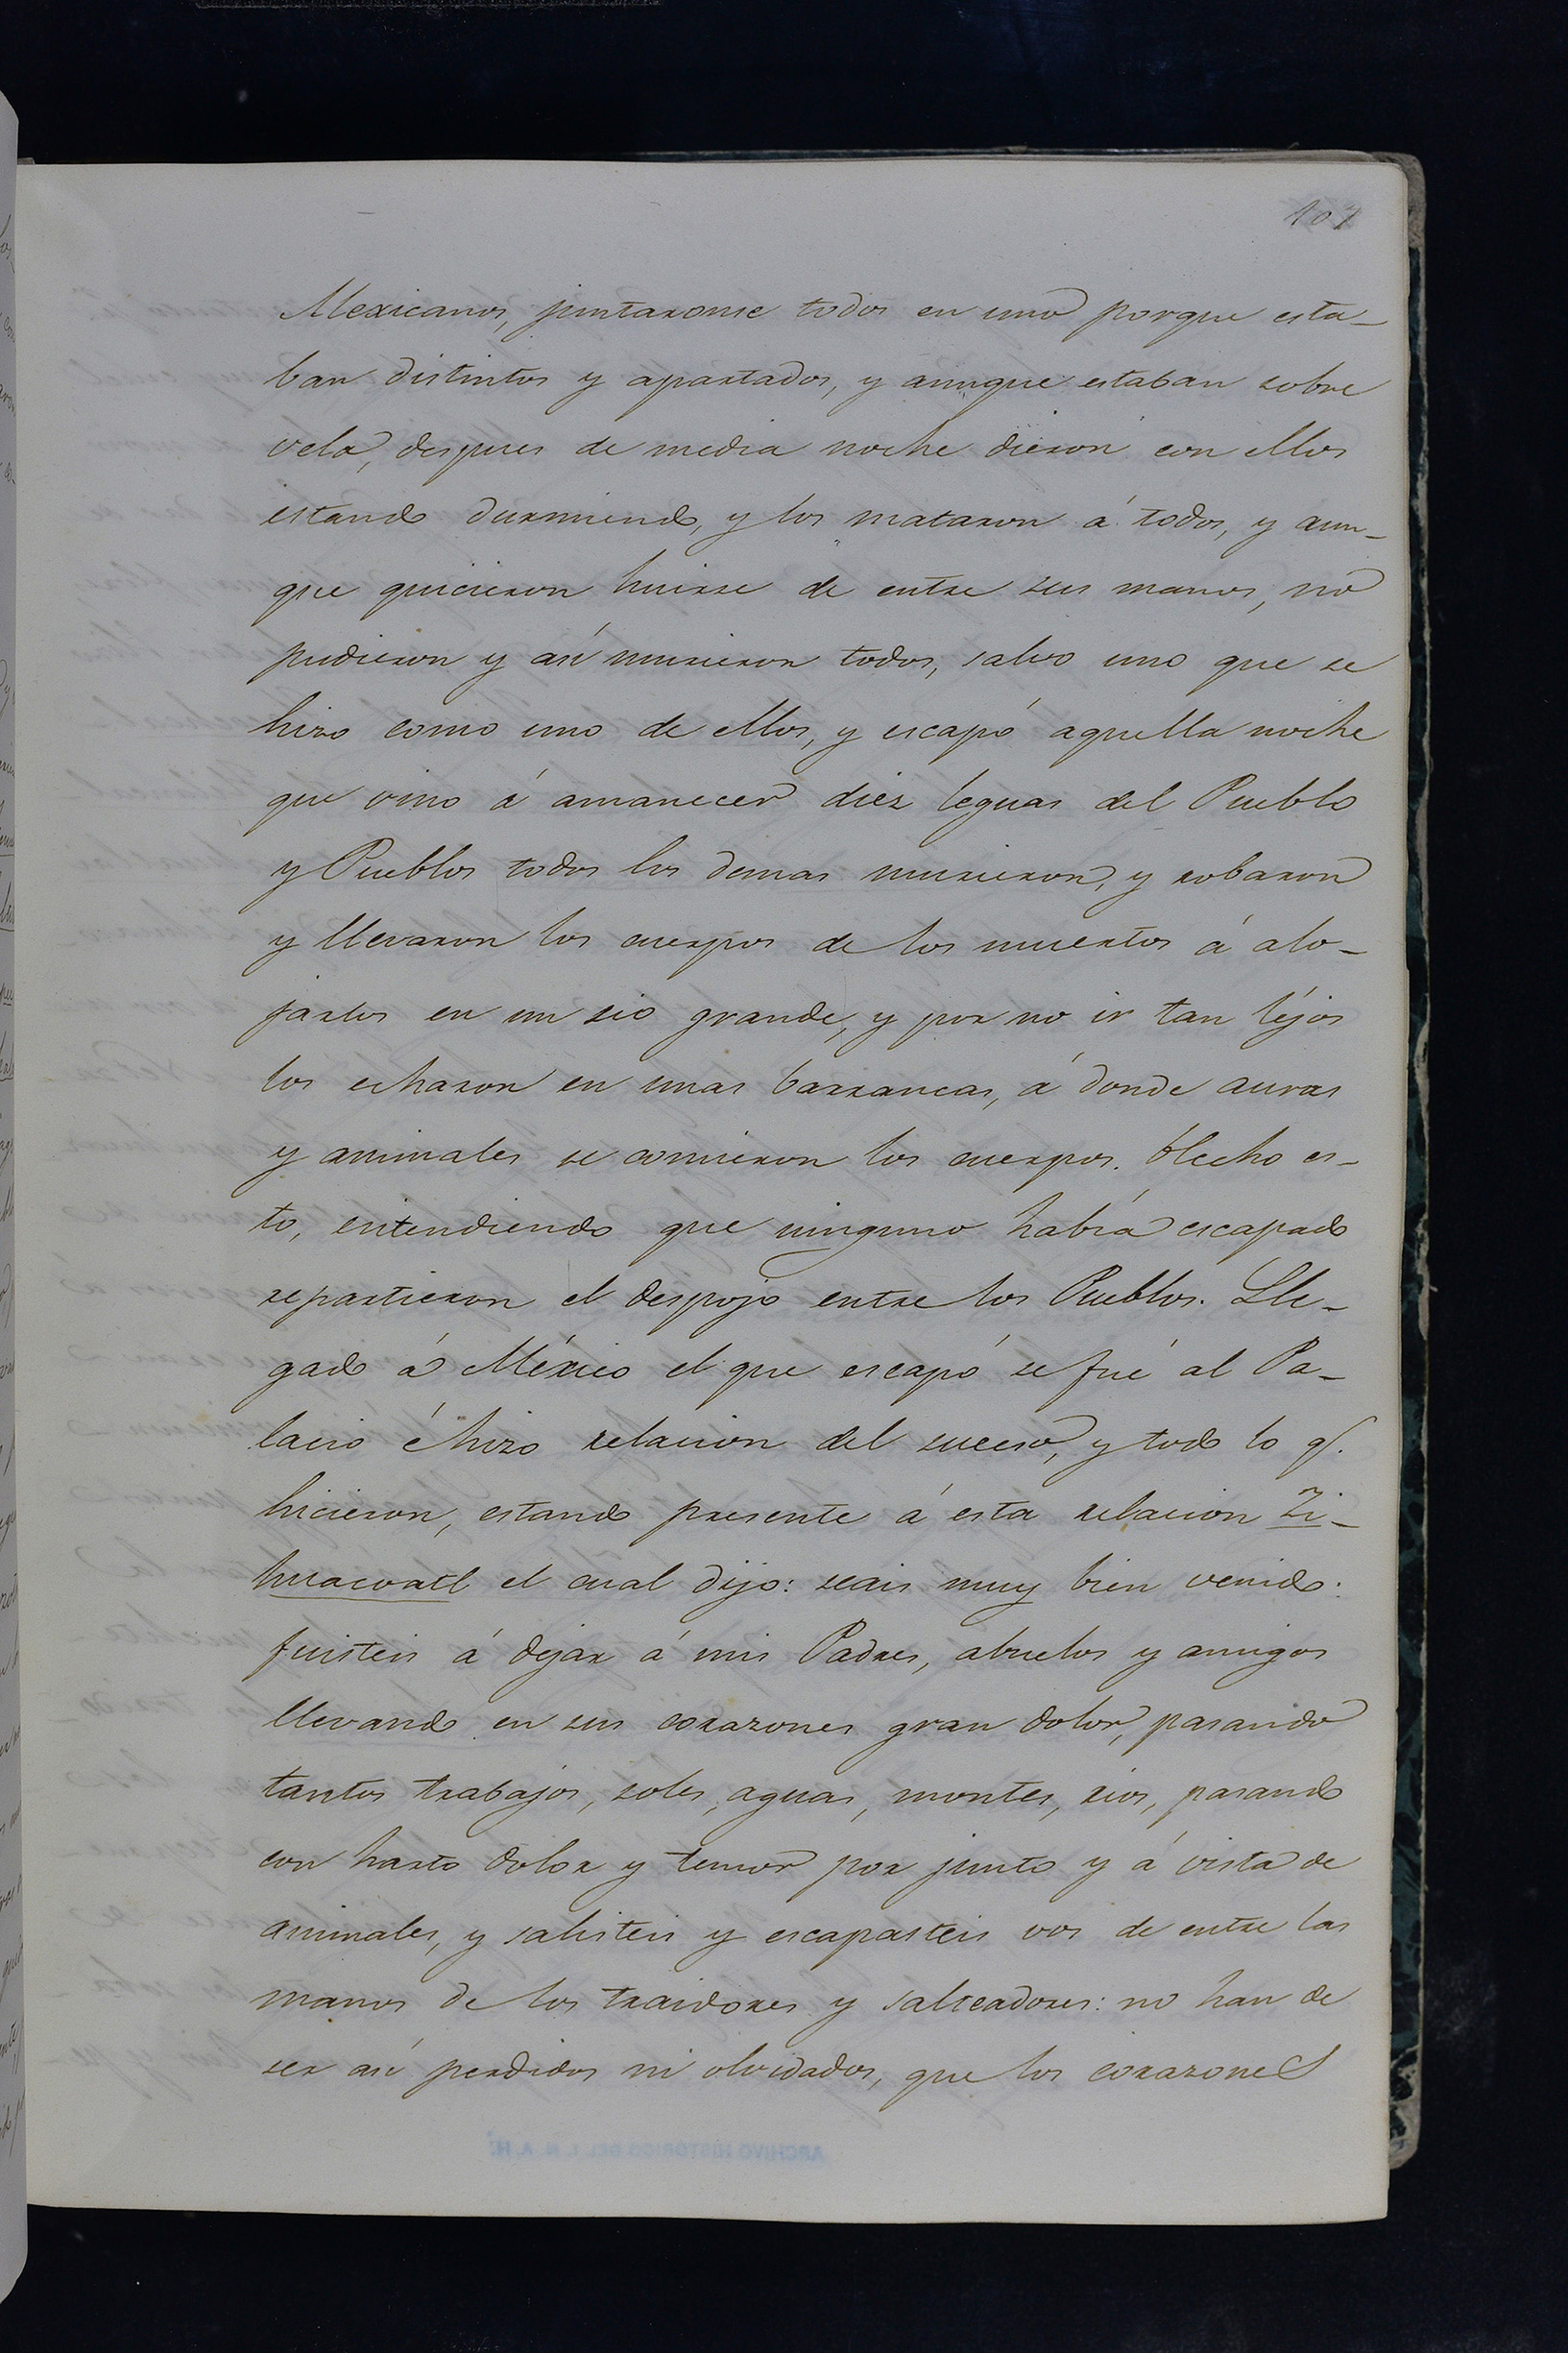 107
Mexicanos, juntaronse todos en uno porque esta-
ban distintos y apartados, y aunque estaban sobre
vela, despues de media noche dieron con ellos
estando durmiendo, y los mataron á todos, y aun-
que quicieron huirse de entre sus manos, no
pudieron y así murieron todos, salvo uno que se
hizo como uno de ellos, y escapó aquella noche
que vino á amanecer diez leguas del Pueblo
y Pueblos todos los demas murieron, y robaron
y llevaron los cuerpos de los muertos á alo-
jarlos en un rio grande, y por no ir tan léjos
los echaron en unas barrancas, á donde auras
y animales se comieron los cuerpos. Hecho es-
to, entendiendo que ninguno habia escapado
repartieron el despojo entre los Pueblos. Lle-
gado á México el que escapó se fué al Pa-
lacio é hizo relacion del suceso, y todo lo q.
hicieron, estando presente á esta relacion Zi-
huacoatl el cual dijo: seais muy bien venido:
fuisteis á dejar á mis Padres, abuelos y amigos
llevando en sus corazones gran dolor, pasando
tantos trabajos, soles, aguas, montes, rios, pasando
con harto dolor y temor por junto y á vista de
animales, y salisteis y escapasteis vos de entre las
manos de los traidores y salteadores: no han de
ser así perdidos ni olvidados, que los corazones
ARCHIVO HISTORICO DEL I. N. A. H.